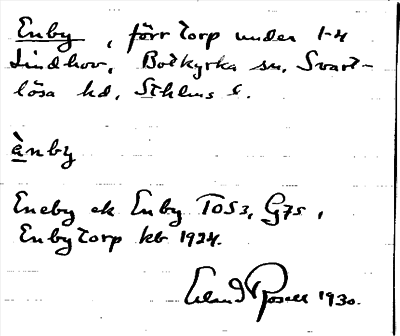 Enby, förr torp under 1-4
Lindhov, Botkyrka sn, Svart-
lösa hd, Sthlms l.
ènby
Eneby ek Enby T053, G75,
Enby torp kb 1924.
Erland Rosell 1930.